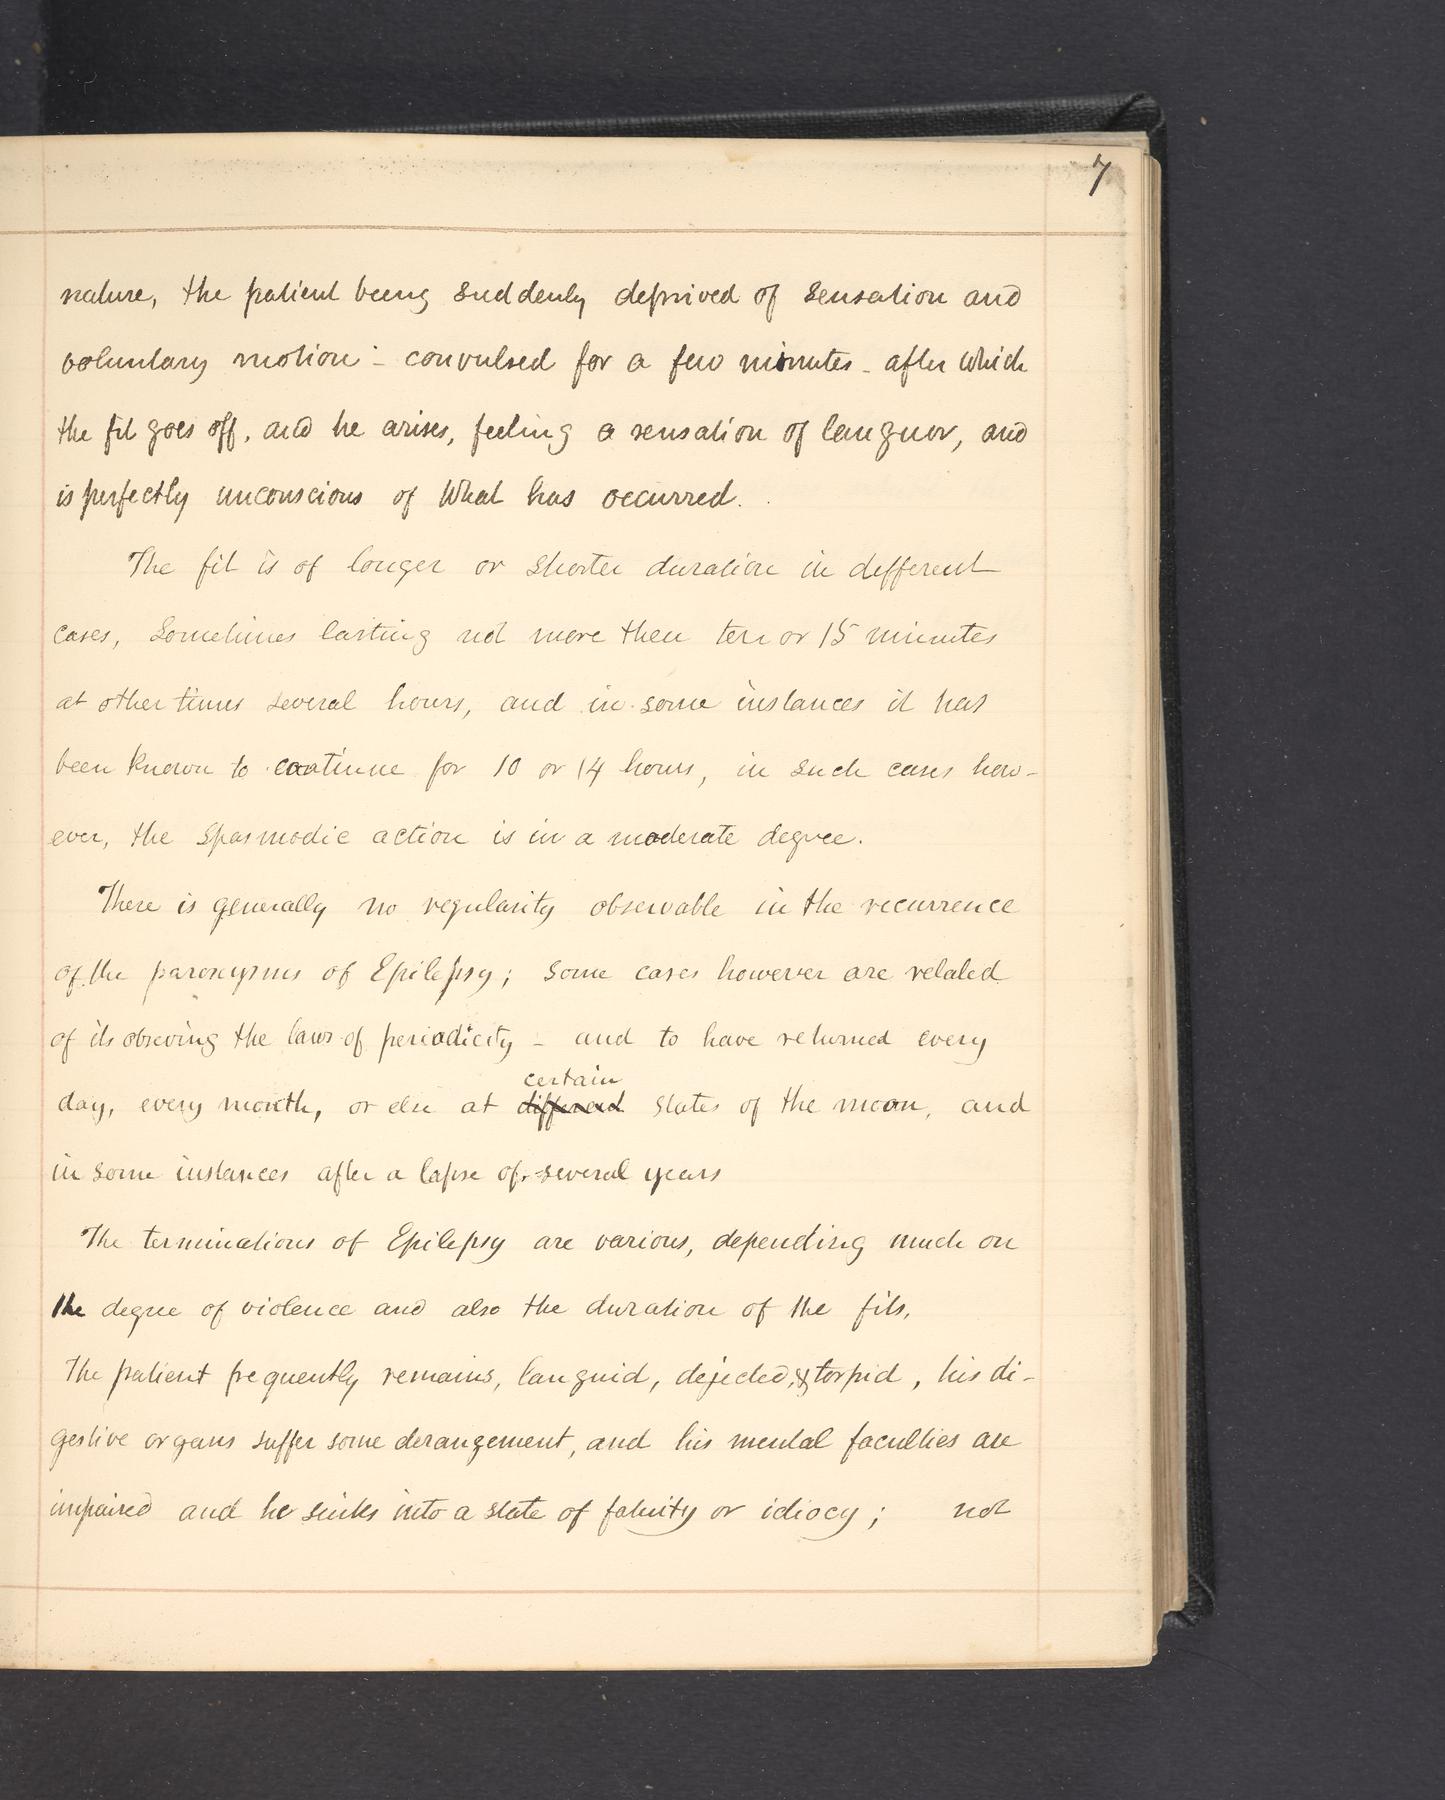 7
nature, the patient being suddenly deprived of sensation and
voluntary motion - convulsed for a few minutes - after which
the fit goes off, and he arises, feeling a sensation of languor, and
is perfectly unconscious of what has occurred.
The fit is of longer or shorter duration in different
cases, sometimes lasting not more then ten or 15 minutes
at other times several hours, and in some instances it has
been known to continue for 10 or 14 hours, in such cases how-
ever, the spasmodic action is in a moderate degree.
There is generally no regularity observable in the recurrence
of the paroxysms of Epilepsy; some cases however are related
of its obseving the laws of periodicity - and to have returned every
certain
day, every month, or else at different states of the moon, and
in some instances after a lapse of several years
The terminations of Epilepsy are various, depending much on
the degree of violence and also the duration of the fits,
The patient frequently remains, languid, dejected, & torpid, his di-
gestive organs suffer some derangement, and his mental faculties are
impaired and he sinks into a state of fatuity or idiocy; not